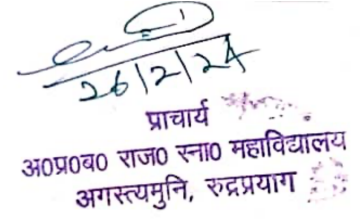 26/2/24
प्राचार्य
अ0प्र0ब0 राज0 स्ना0 महाविद्यालय
अगस्त्यमुनि, रुद्रप्रयाग